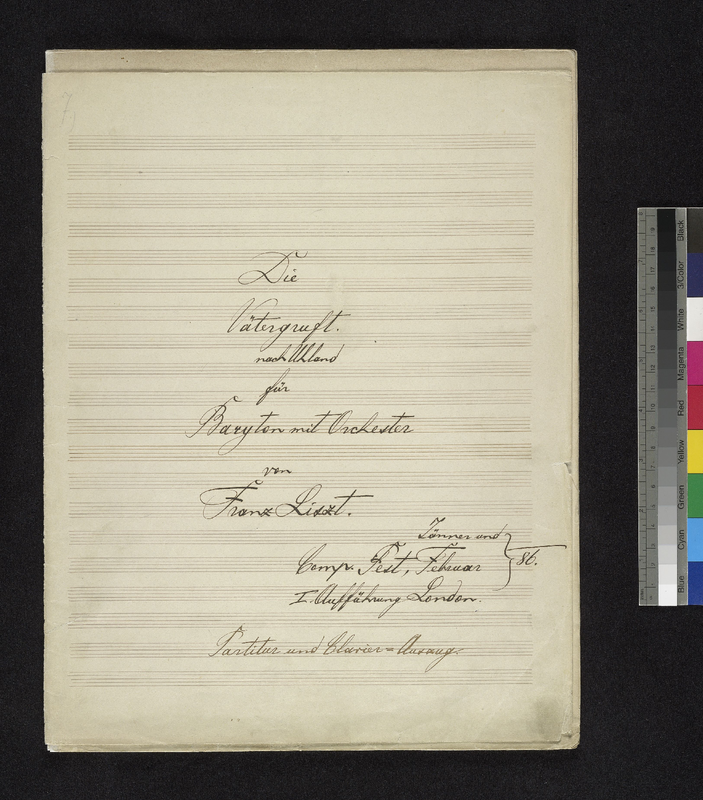 Die
Vätergruft.
nach Uhland
für
Baryton mit Orchester
von
Franz Liszt.
Jänner und
Comp. Pest, Februar 86.
I. Aufführung London.
Partitur und Clavier=Auszug.
Black
3/Color
White
Magenta
Red
Yellow
Green
Cyan
Blue